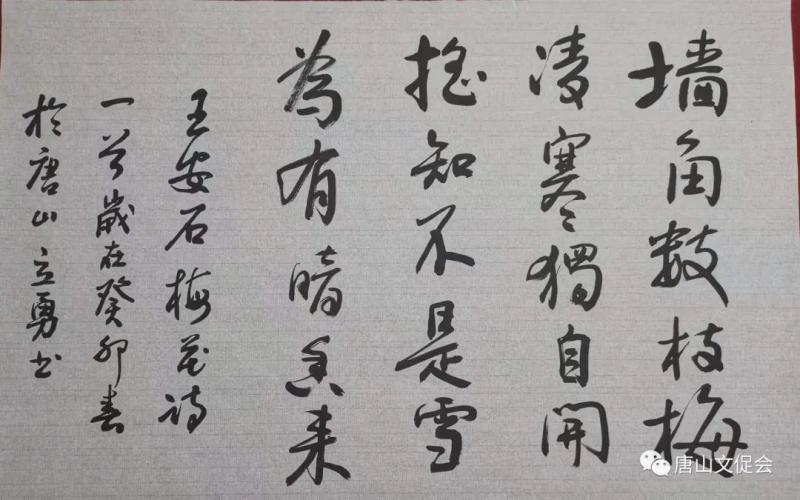 墙角数枝梅
凌寒獨自開
摇知不是雪
為有暗香来
王安石梅花诗
一首歲在癸卯春
於唐山立勇书
唐山文促会